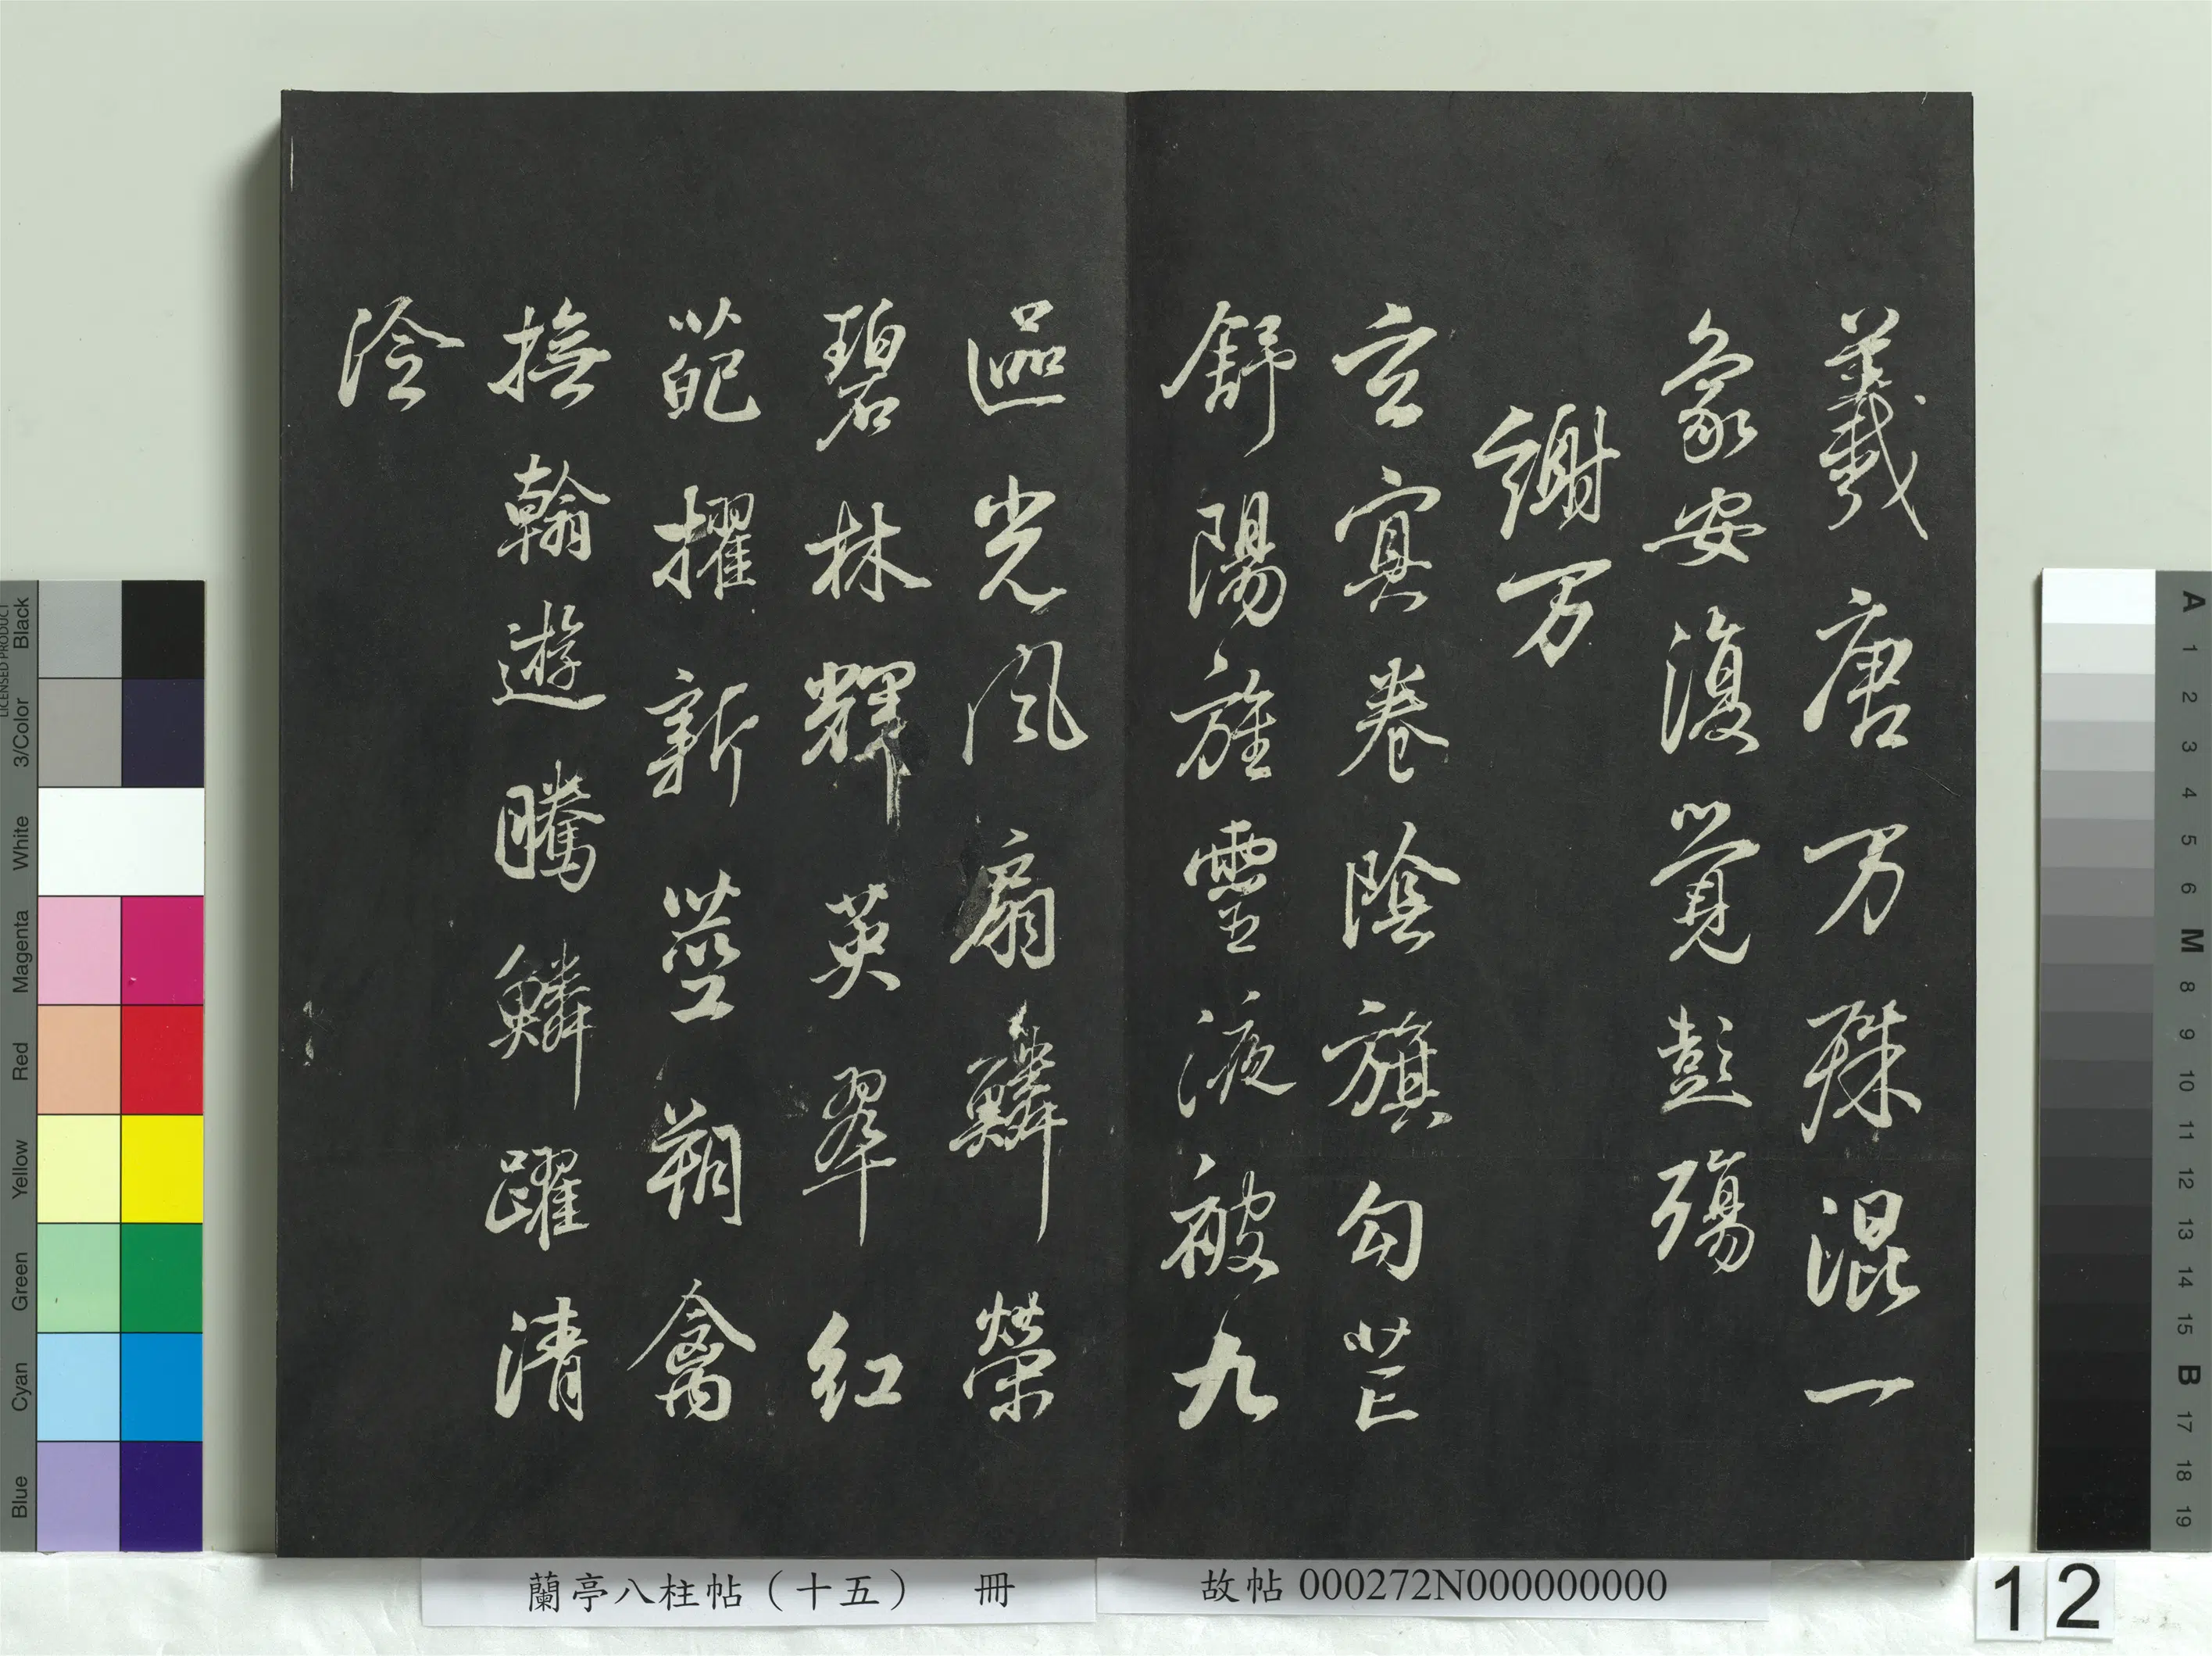 羲唐万殊混一
象安復覺彭殤
謝万
玄冥卷陰旗勾芒
舒陽旌靈液被九
區光風扇鱗榮
碧林輝英翠紅
葩擢新莖翔禽
撫翰遊騰鱗躍清
泠
蘭亭八柱帖（十五） 冊
故帖 000272N000000000
12
LICENSED PRODUCT
Black
3/Color
White
Magenta
Red
Yellow
Green
Cyan
Blue
A
1
2
3
4
5
6
M
8
9
10
11
12
13
14
15
B
17
18
19